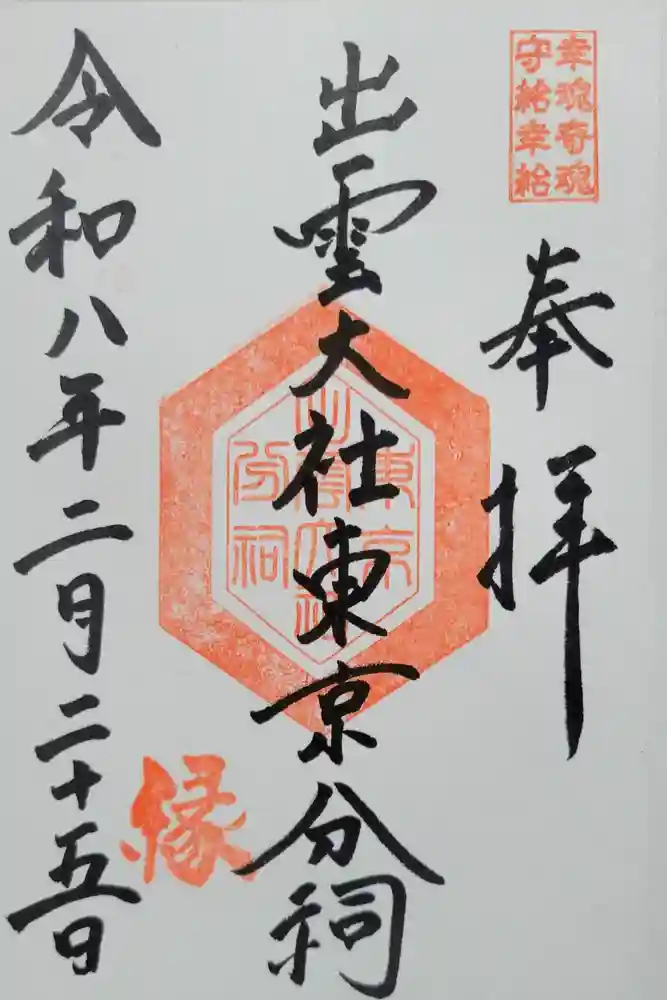 幸魂奇魂
守給幸給
奉拝
出雲大社東京分祠
令和八年二月二十五日
縁
東京
出雲大社
分祠